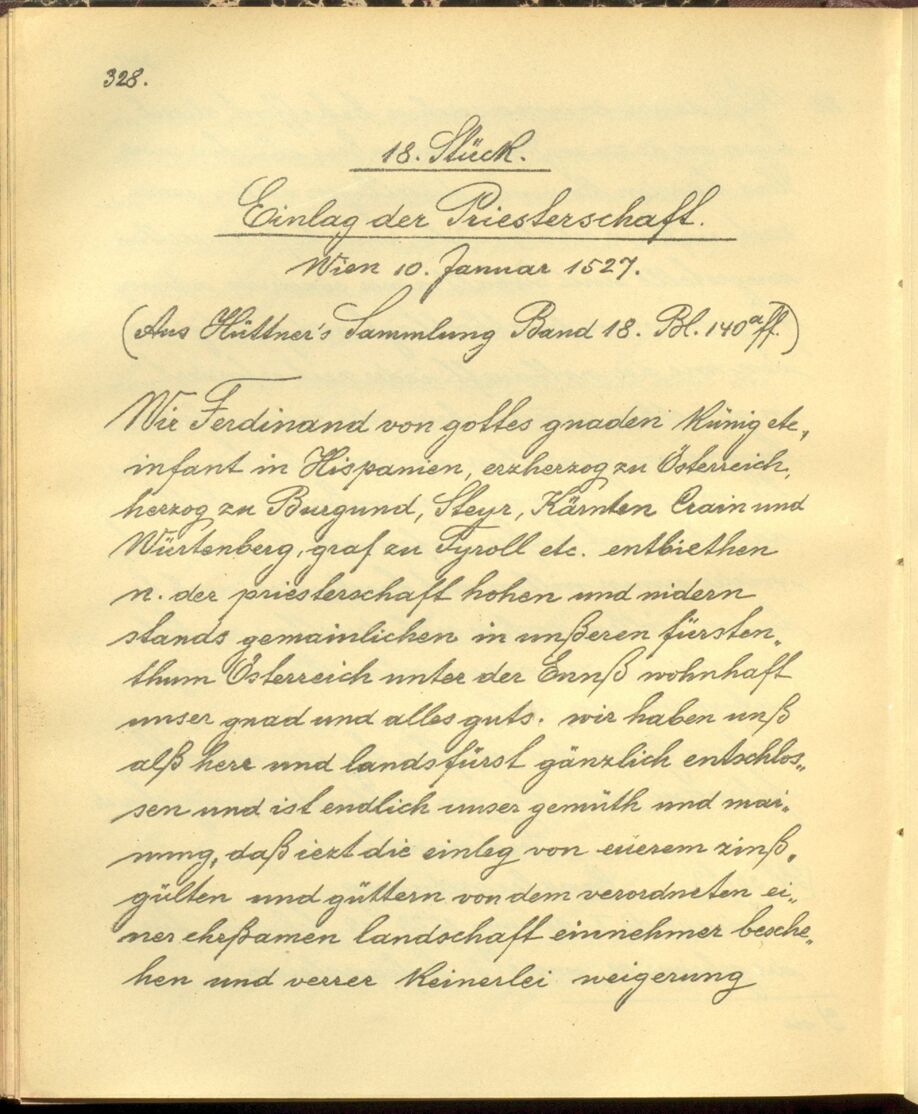 328.
18. Stück.
Einlag der Priesterschaft.
Wien 10. Januar 1527.
(Aus Hüttner's Sammlung Band 18. Bl. 140a ff.)
Wir Ferdinand von gottes gnaden Künig etc,
infant in Hispanien, erzherzog zu Österreich,
herzog zu Burgund, Steyr, Kärnten Crain und
Würtenberg, graf zu Tyroll etc. entbiethen
n. der priesterschaft hohen und nidern
stands gemainlichen in unßeren fürsten„
thum Österreich unter der Ennß wohnhaft
unser gnad und alles guts. wir haben unß
alß herr und landsfürst gänzlich entschlos„
sen und ist endlich unser gemüth und mai„
nung, daß iezt die einleg von euerem zinß„
gülten und güttern von dem verordneten ei„
ner ehrßamen landschaft einnehmer besche„
hen und verrer keinerlei weigerung